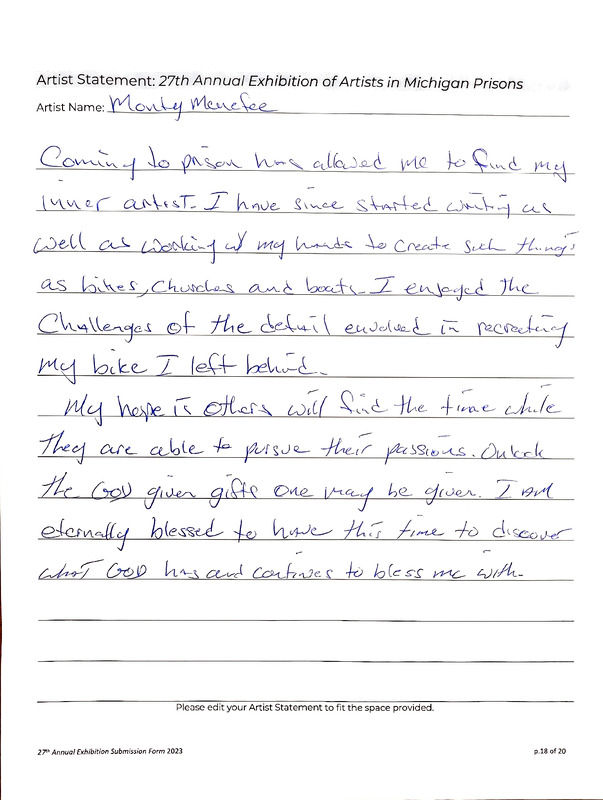 Artist Statement: 27th Annual Exhibition of Artists in Michigan Prisons
Artist Name: Monty Menefee
Coming to prison has allowed me to find my
inner artist. I have since started writing as
well as working w/ my hands to create such things
as bikes, churches and boats. I enjoyed the
challenges of the detail envolved in recreating
my bike I left behind.
My hope is others will find the time while
they are able to pursue their passions. Unlock
the GOD given gifts one may be given. I am
eternally blessed to have this time to discover
what GOD has and continues to bless me with.
Please edit your Artist Statement to fit the space provided.
27th Annual Exhibition Submission Form 2023
p.18 of 20